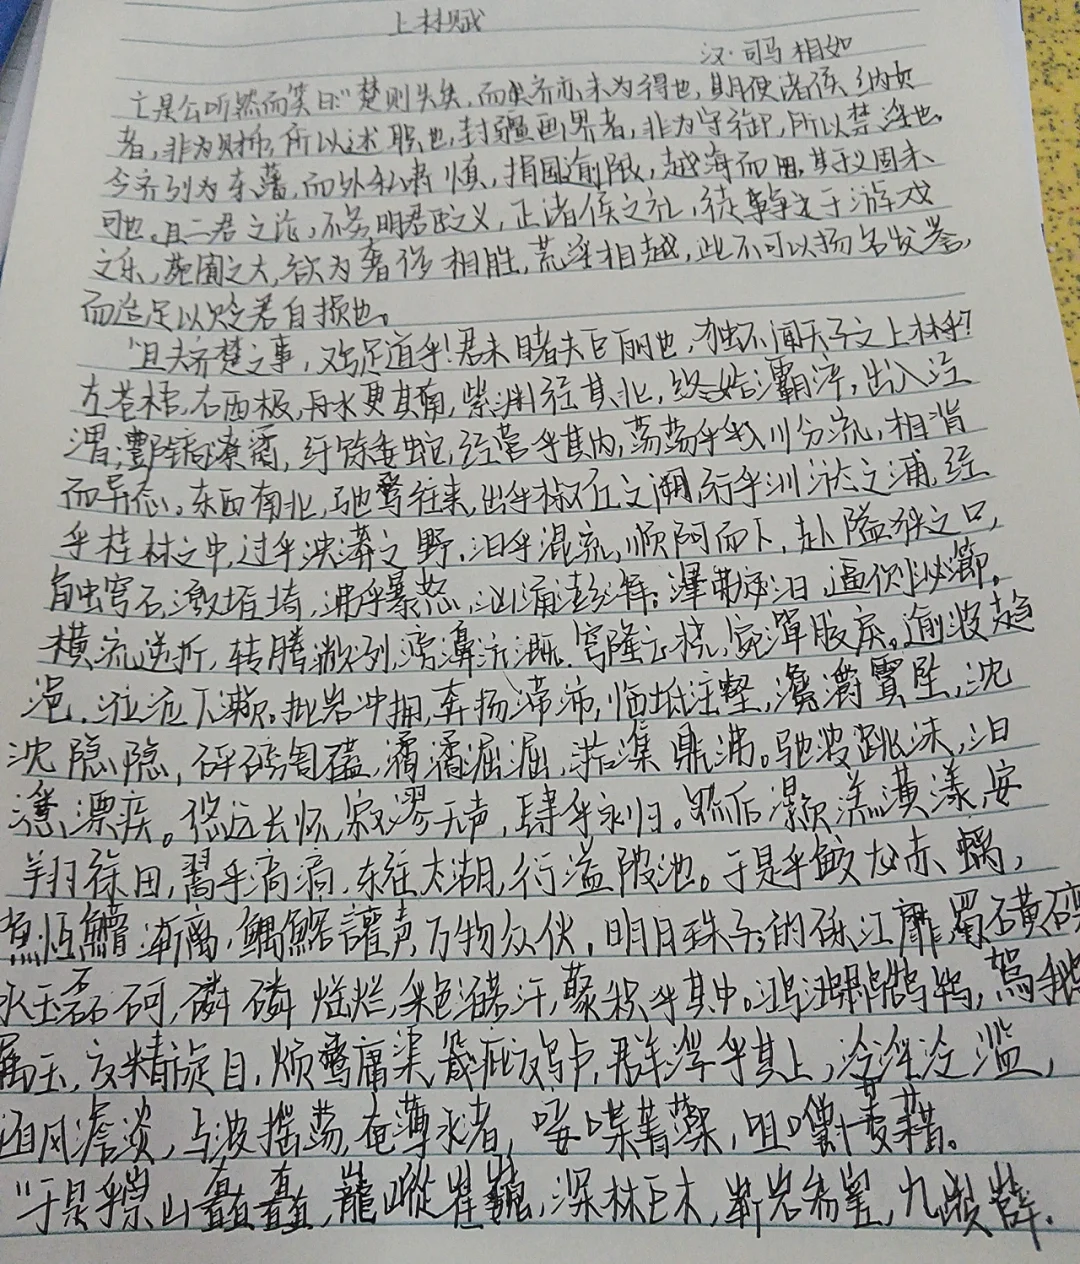 上林赋
汉·司马相如
亡是公听然而笑曰:"楚则失矣,而齐亦未为得也,夫使诸侯纳贡
者,非为财币,所以述职也,封疆画界者,非为守御,所以禁淫也。
今齐列为东藩,而外私肃慎,捐国逾限,越海而田,其于义固未
可也。且二君之论,不务明君臣之义,正诸侯之礼,徒事争于游戏
之乐,苑囿之大,欲以奢侈相胜,荒淫相越,此不可以扬名发誉,
而适足以贬君自损也。
"且夫齐楚之事,又乌足道乎!君未睹夫巨丽也,独不闻天子之上林乎?
左苍梧,右西极,丹水更其南,紫渊径其北,终始灞浐,出入泾
渭,酆镐潦潏,纡馀委蛇,经营乎其内,荡荡乎八川分流,相背
而异态。东西南北,驰骛往来,出乎椒丘之阙,行乎洲淤之浦,经
乎桂林之中,过乎泱漭之野,汩乎混流,顺阿而下,赴隘狭之口,
触穹石,激堆埼,沸乎暴怒,汹涌澎湃。滭弗宓汩,逼侧泌瀄。
横流逆折,转腾潎洌,滂濞沆溉。穹隆云桡,宛潬胶戾。逾波趋
浥,涖涖下濑。批岩冲拥,奔扬滞沛,临坻注壑,瀺灂霣坠,沈
沈隐隐,砰磅訇礚,潏潏淈淈,湁潗鼎沸。驰波跳沫,汩
濦漂疾。悠远长怀,寂漻无声,肆乎永归。然后灏溔潢漾,安
翔徐回,翯乎滈滈,东注太湖,衍溢陂池。于是乎鲛龙赤螭,
䱭䲛渐离,鰅鳙 声,万物众伙,明月珠子,的砾江靡,蜀石黄碝
水玉磊砢,磷磷烂烂,采色澔汗,藂积乎其中。鸿鹔鹄鸨,鴐鹅
属玉,交精旋目,烦鹜庸渠,箴疵䴔卢,群浮乎其上,泛淫泛滥,
随风澹淡,与波摇荡,奄薄水渚,唼喋菁藻,咀嚼菱藕。
"于是乎崇山矗矗,巃嵷崔巍,深林巨木,崭岩参差,九嵕